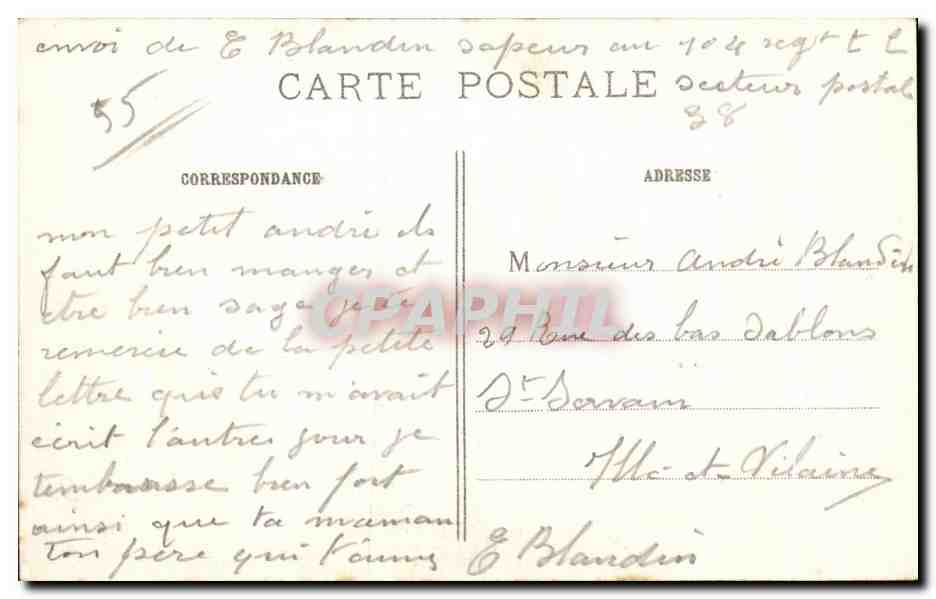 envoi de E Blandin sapeur au 104 regt t L
CARTE POSTALE
secteur postal
38
55
CORRESPONDANCE
mon petit andré ils
faut bien manger et
etre bien sage je te
remercie de la petite
lettre quis tu m'avait
écrit l'autres jour je
tembrasse bien fort
ainsi que ta maman
ton père qui t'aime
E Blandin
ADRESSE
Monsieur andré Blandin
29 Rue des bas Sablons
St Servain
Ille et Vilaine
CPAPHIL